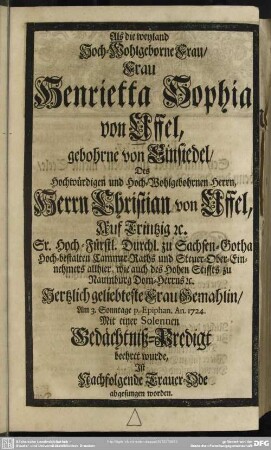 Als die weyland
Hoch-Wohlgeborne Frau/
Frau
Henrietta Sophia
von Uffel,
gebohrne von Einsiedel/
Des
Hochwürdigen und Hoch-Wohlgebohrnen Herrn,
Herrn Christian von Uffel,
Auf Trintzig ꝛc.
Sr. Hoch-Fürstl. Durchl. zu Sachsen-Gotha
Hoch-bestalten Cammer-Raths und Steuer-Ober-Ein-
nehmers allhier, wie auch des Hohen Stiffts zu
Naumburg Dom-Herrns ꝛc.
Hertzlich geliebteste Frau Gemahlin/
Am 3. Sonntage p. Epiphan. An. 1724.
Mit einer Solennen
Gedächtniß-Predigt
beehret wurde,
Ist
Nachfolgende Trauer-Ode
abgesungen worden.
DFG